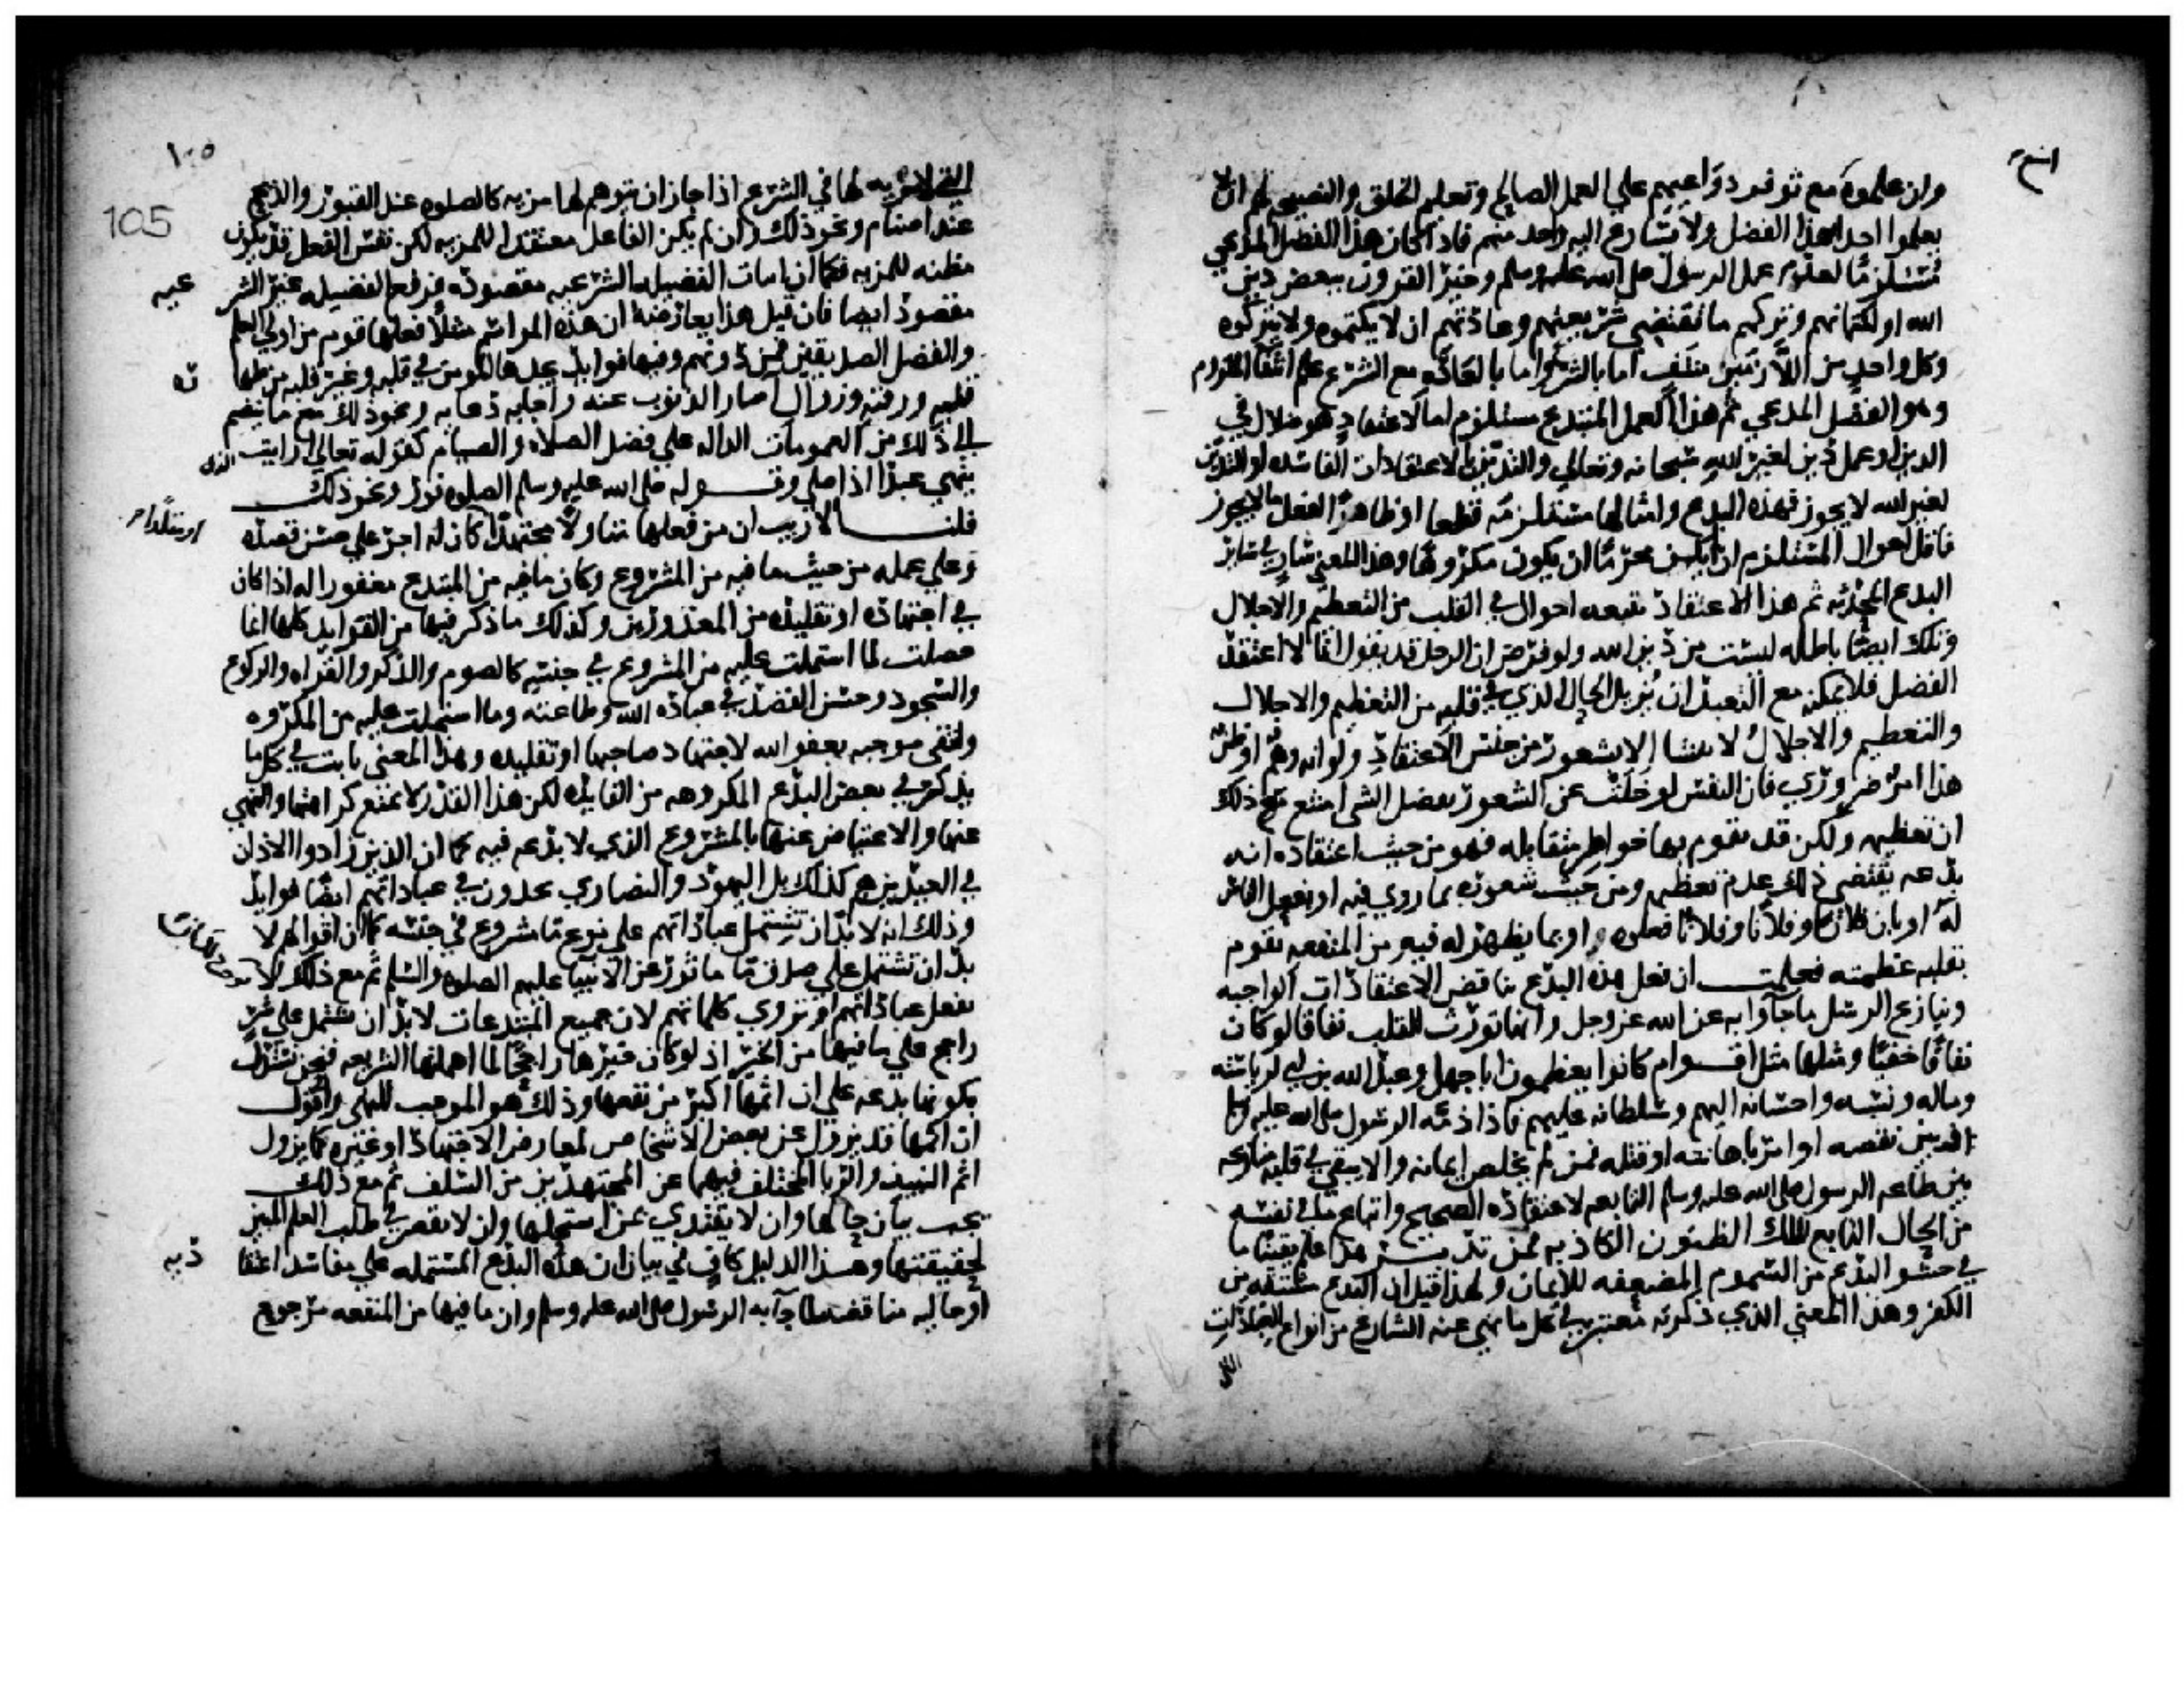 وان علموه مع توفر دواعيهم علي العمل الصالح وتعليم الخلق والنصيحه لهم ان لا
يعلموا احدا بهذا الفضل ولا يسارع اليه واحد منهم فاذا كان هذا الفضل المدعي
مستلزما لعدم علم الرسول صلى الله عليه وسلم وخير القرون ببعض دين
الله او لكتمانهم وتركهم ما تقتضي شريعتهم وعادتهم ان لا يكتموه ولا يتركوه
وكل واحد من اللازمين منتف اما بالشرع واما بالعاده مع الشرع علم انتفا الملزوم
وهو الفضل المدعي ثم هذا العمل المبتدع مستلزم اما لاعتقاد هو ضلال في
الدين او عمل دين لغير الله سبحانه وتعالي والتدين بالاعتقادات الفاسده او التدين
لغير الله لا يجوز فهذه البدع وامثالها مستلزمه قطعا او ظاهرا لفعل ما لا يجوز
فاقل احوال المستلزم ان لم يكن محرما ان يكون مكروها وهذا المعني سار في ساير
البدع المحدثه ثم هذا الاعتقاد يتبعه احوال في القلب من التعظيم والاجلال
وتلك ايضا باطله ليست من دين الله ولو فرض ان الرجل قد يقول انا لا اعتقد
الفضل فلا يمكنه مع التعبد ان يزيل الحال الذي في قلبه من التعظيم والاجلال
والتعظيم والاجلال لا ينشا الا بشعور من جنس الاعتقاد ولو انه وهم او ظن
هذا امر ضروري فان النفس لو خلت عن الشعور بفضل الشي امتنع مع ذلك
ان تعظمه ولكن قد تقوم بها خواطر متقابله فهو من حيث اعتقاده انه
بدعه يقتضي ذلك عدم تعظيمه ومن حيث شعوره بما روي فيه او بفعل الناس
له او بان فلانا وفلانا وفلانا فعلوه او بما يظهر له فيه من المنفعه يقوم
بقلبه عظمته فعلمت ان فعل هذه البدع يناقض الاعتقادات الواجبه
وينازع الرسل ما جآوا به عن الله عز وجل وانها تورث القلب نفاقا لو كان
نفاقا خفيا ومثلها مثل اقوام كانوا يعظمون ابا جهل وعبد الله بن ابي لرياسته
وماله ونسبه واحسانه اليهم وسلطانه عليهم فاذا ذمه الرسول صلى الله عليه وسلم
او بين نقصه او امر باهانته او قتله فمن لم يخلص ايمانه والا يبقي في قلبه منازعه
بين طاعه الرسول صلى الله عليه وسلم التابعه لاعتقاده الصحيح واتباع ما في نفسه
من الحال التابع لتلك الظنون الكاذبه فمن تدبر هذا علم يقينا ما
في حشو البدع من السموم المضعفه للايمان ولهذا قيل ان البدع مشتقه من
الكفر وهذا المعني الذي ذكرته معتبر في كل ما نهي عنه الشارع من انواع العبادات
التي
١٠٥
105
التي لا مزيه لها في الشرع اذا جاز ان يتوهم لها مزيه كالصلوه عند القبور والذبح
عند اصنام ونحو ذلك وان لم يكن الفاعل معتقدا للمزيه لكن نفس الفعل قد يكون
مظنه للمزيه فكما ان اثبات الفضيله الشرعيه مقصود فرفع الفضيله غير الشر
عيه
مقصود ايضا فان قيل هذا يعارضه ان هذه المواسم مثلا فعلها قوم من اولي العلم
والفضل الصديقين فمن دونهم وفيها فوايد يجدها المومن في قلبه وغير قلبه من طها
ره
قلبه ورقته وزوال اصار الذنوب عنه واجابه دعايه ونحو ذلك مع ما ينضم
الي ذلك من العمومات الداله علي فضل الصلاه والصيام كقوله تعالي ارايت الذي
ينهي عبدا اذا صلي وقوله صلى الله عليه وسلم الصلوه نور ونحو ذلك
قلنا لا ريب ان من فعلها متاولا مجتهدا كان له اجر علي حسن قصده
او مقلدا
وعلي عمله من حيث ما فيه من المشروع وكان ما فيه من المبتدع مغفورا له اذا كان
في اجتهاده او تقليده من المعذورين وكذلك ما ذكر فيها من الفوايد كلها انما
حصلت لما اشتملت عليه من المشروع في جنسه كالصوم والذكر والقراه والركوع
والسجود وحسن القصد في عباده الله وطاعته وما اشتملت عليه من المكروه
وانتفي موجبه بعفو الله لاجتهاد صاحبها او تقليده وهذا المعني ثابت في كل ما
يذكر في بعض البدع المكروهه من الفايده لكن هذا القدر لا يمنع كراهتها والنهي
عنها والاعتياض عنها بالمشروع الذي لا بدعه فيه كما ان الذين زادوا الاذان
في العيدين هم كذلك بل اليهود والنصاري يجدون في عباداتهم ايضا فوايد
وذلك انه لا بد ان تشتمل عباداتهم علي نوع ما مشروع في جنسه كما ان اقوالهم لا
بد ان تشتمل علي صدق ما ماثور عن الانبيا عليهم الصلوه والسلم ثم مع ذلك لا
نفعل عباداتهم او نروي كلماتهم لان جميع المبتدعات لا بد ان تشتمل علي شر
راجح علي ما فيها من الخير اذ لو كان خيرها راجحا لما اهملتها الشريعه فنحن نستدل
بكونها بدعه علي ان اثمها اكبر من نفعها وذلك هو الموجب للنهي واقول
ان اثمها قد يزول عن بعض الاشخاص لمعارض الاجتهاد او غيره كما يزول
اثم النبيذ والربا المختلف فيهما عن المجتهدين من السلف ثم مع ذلك
يجب بيان حالها وان لا يقتدي بمن استحلها وان لا يقصر في طلب العلم المبين
لحقيقتها وهذا الدليل كاف في بيان ان هذه البدع المشتمله علي مفاسد اعتقا
ديه
او حاليه مناقضه لما جآ به الرسول صلى الله عليه وسلم وان ما فيها من المنفعه مرجوح